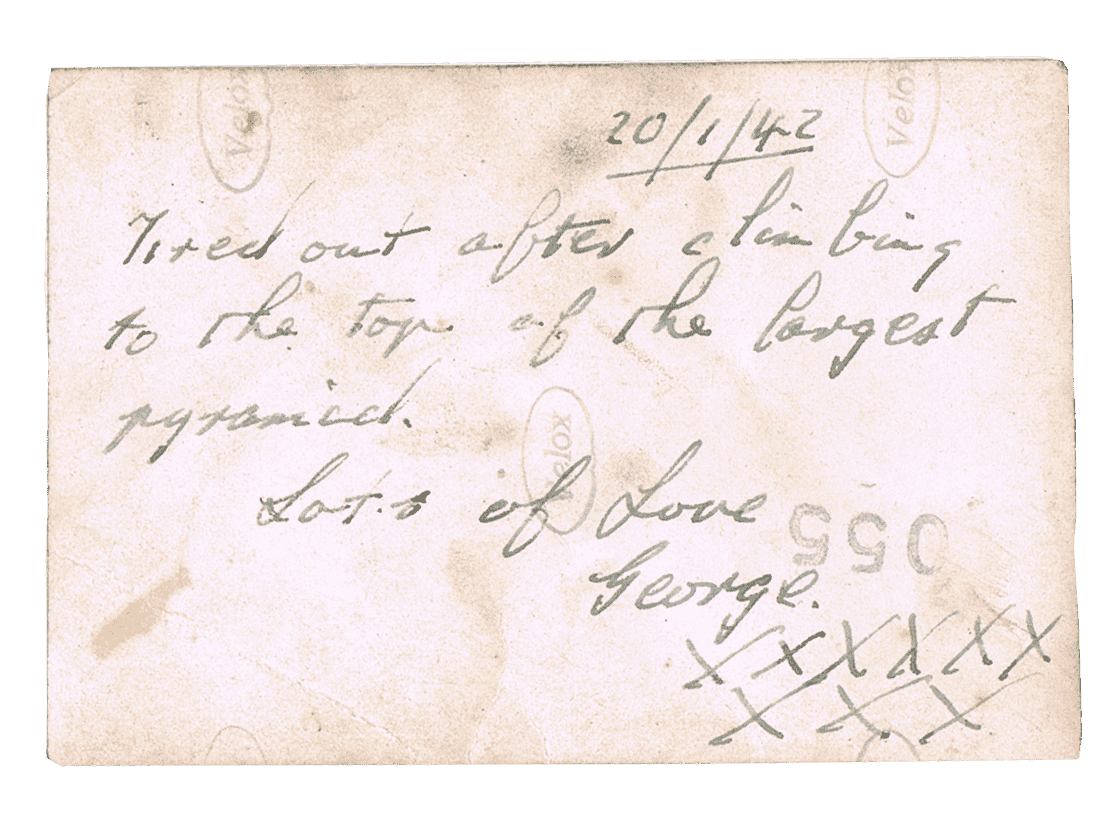 Velox
Velox
20/1/42
Tired out after climbing
to the top of the largest
pyramid.
Velox
Lots of Love
055
George.
X X X X X X
X X X